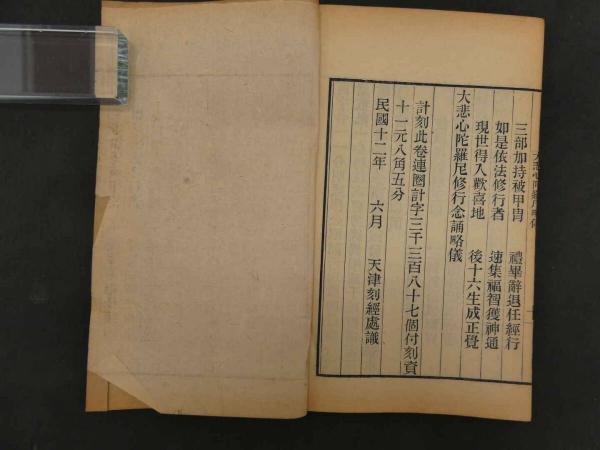 大悲心陀羅尼略儀
三部加持被甲冑　禮畢辭退任經行
如是依法修行者　速集福智獲神通
現世得入歡喜地　後十六生成正覺
大悲心陀羅尼修行念誦略儀
計刻此卷連圈計字三千三百八十七個付刻資
十一元八角五分
民國十二年　六月　天津刻經處識